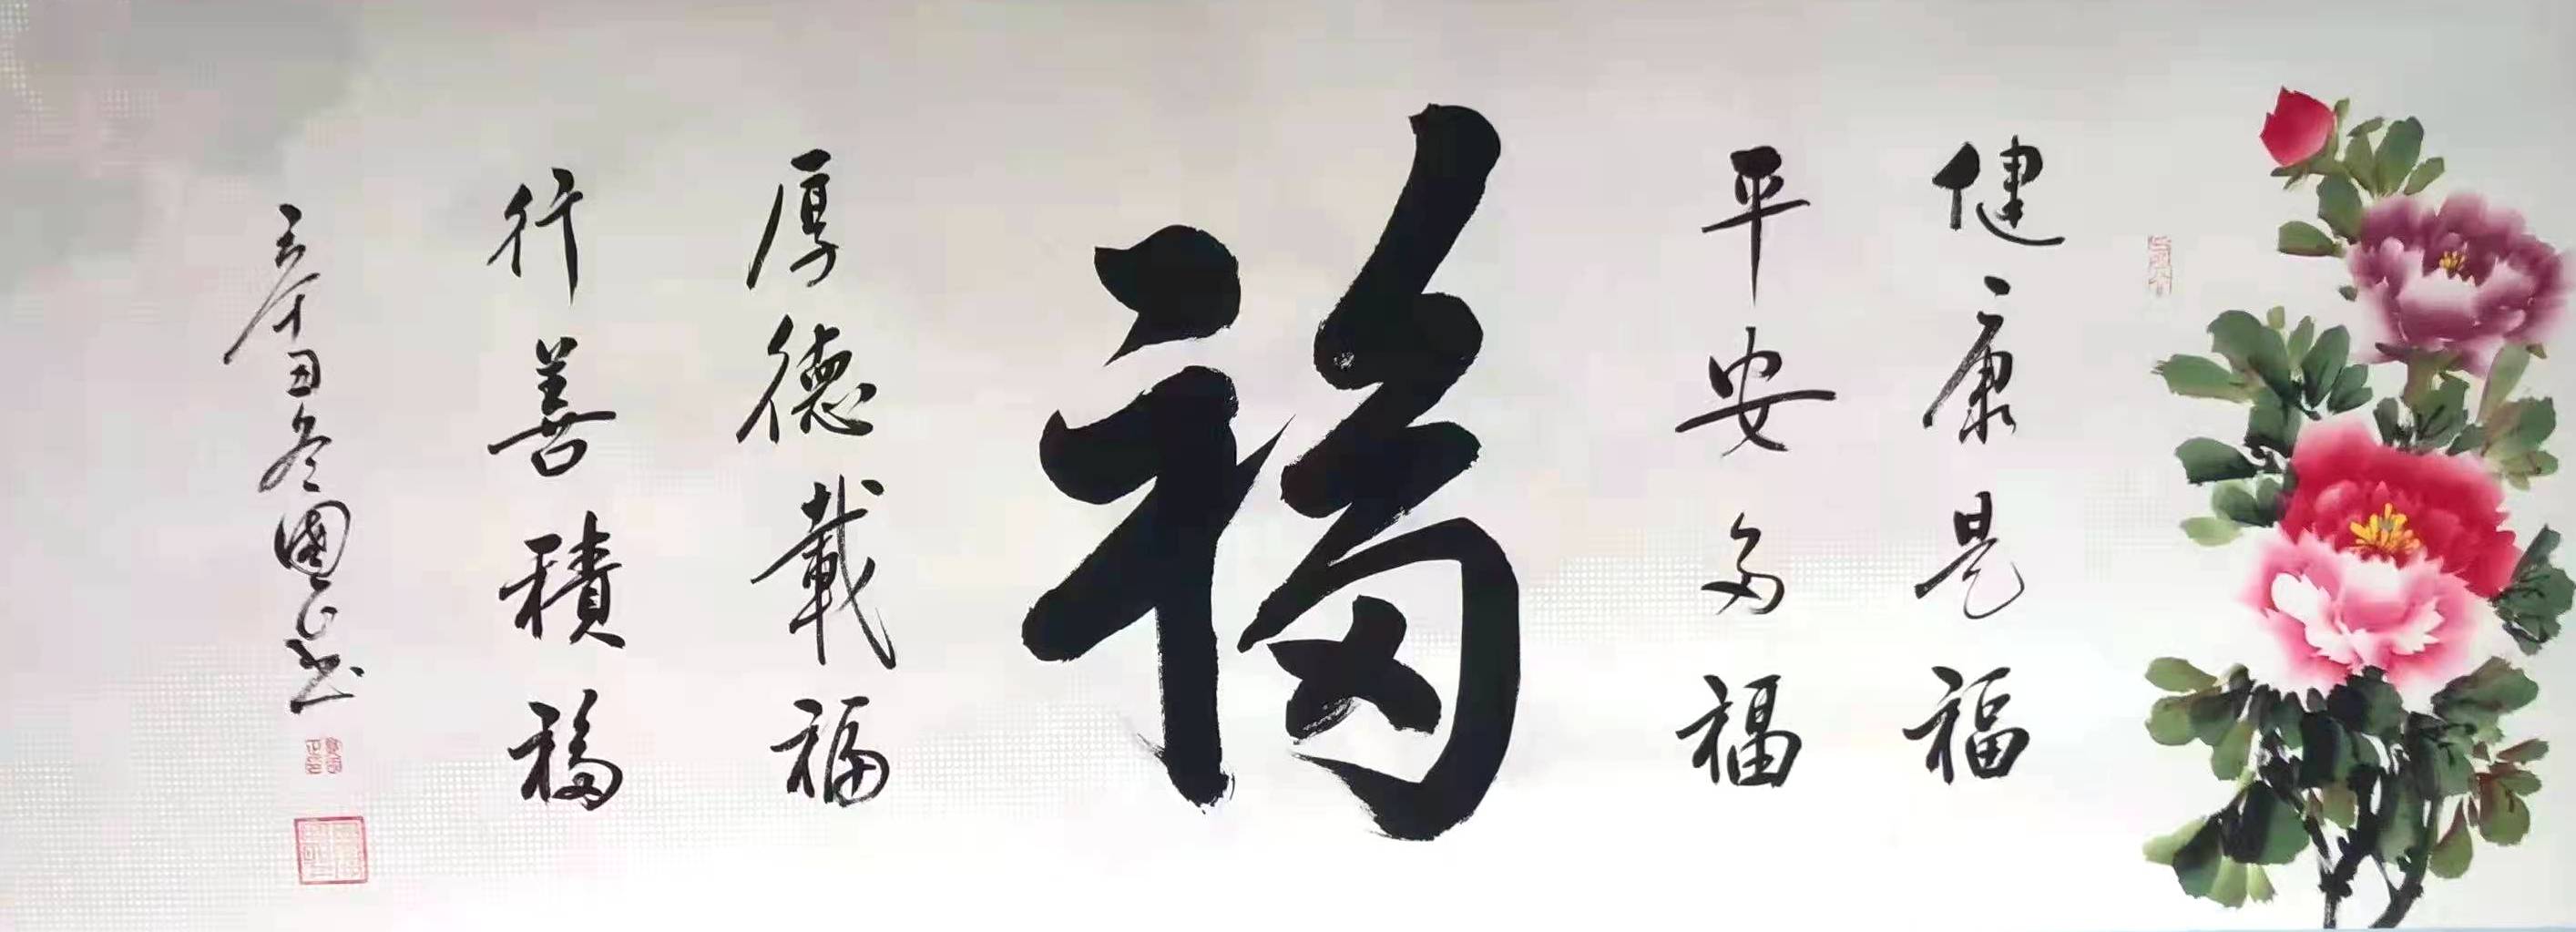 健康是福
平安多福
福
厚德載福
行善積福
辛丑冬國正书